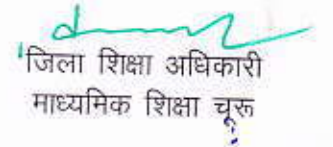 जिला शिक्षा अधिकारी
माध्यमिक शिक्षा चूरू